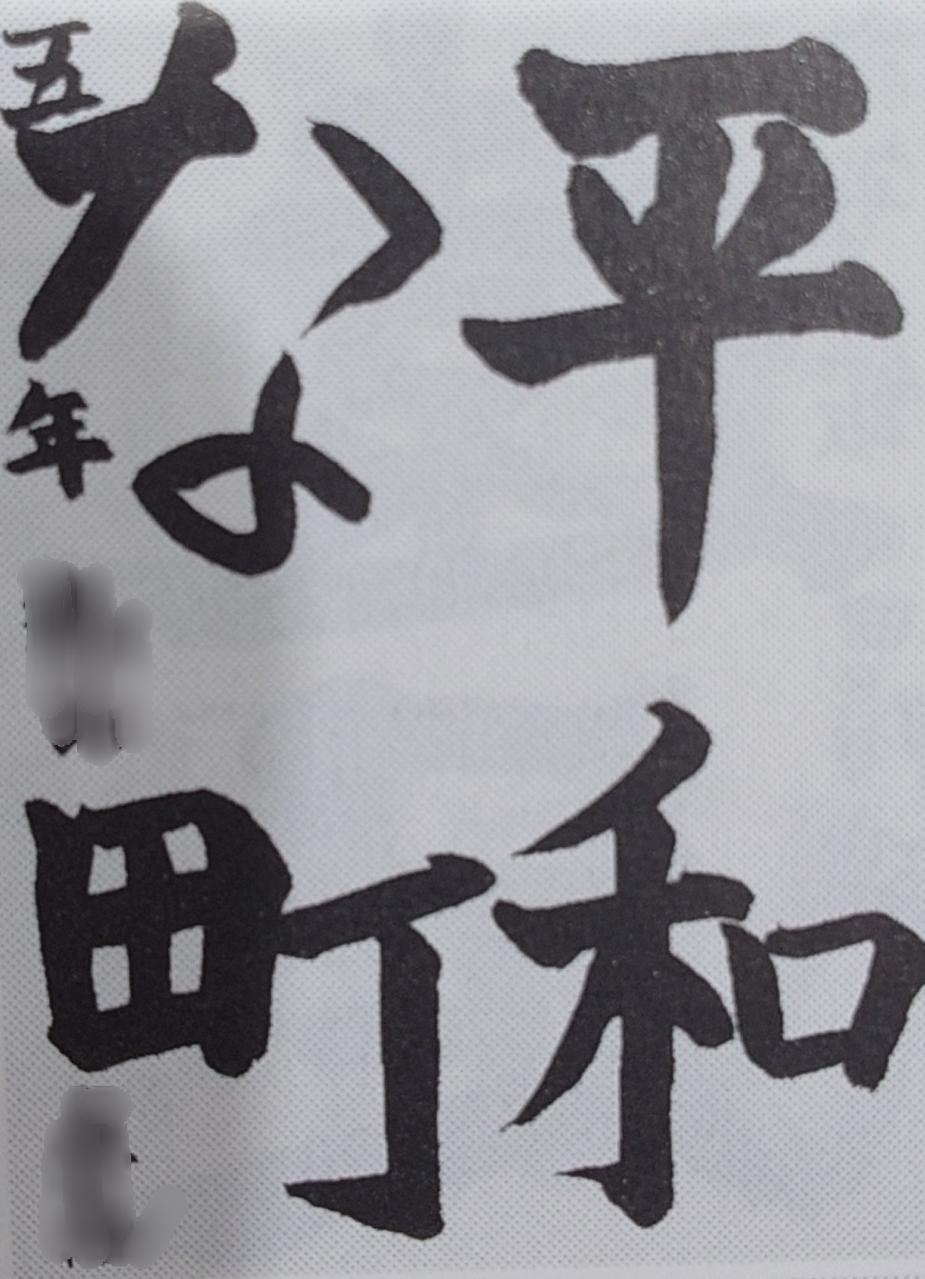 平和
な町
五年